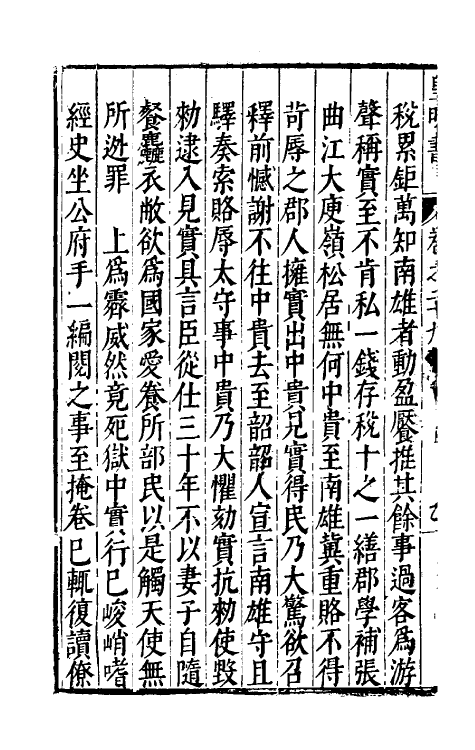 皇明書
卷之二十九
稅累鉅萬知南雄者動盈饜推其餘事過客爲游
聲稱實至不肯私一錢存稅十之一繕郡學補張
曲江大庾嶺松居無何中貴至南雄冀重賂不得
苛辱之郡人擁實出中貴見實得民乃大驚欲召
釋前憾謝不往中貴去至韶韶人宣言南雄守且
驛奏索賂辱太守事中貴乃大懼劾實抗勑使毀
勑逮入見實具言臣從仕三十年不以妻子自隨
餐麤衣敝欲爲國家愛養所部民以是觸天使無
所迯罪 上爲霽威然竟死獄中實行巳峻峭嗜
經史坐公府手一編閱之事至掩卷巳輒復讀僚